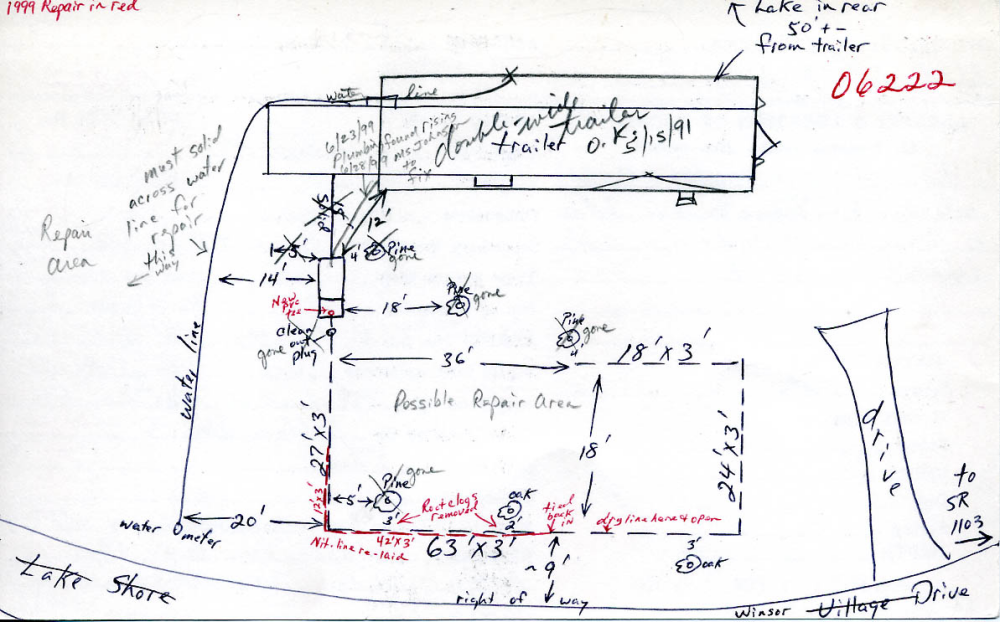 1999 Repair in red
Lake in rear
50' +-
from trailer
06222
water line
double-wide trailer
trailer O.K. 5/15/91
6/23/99
Plumbing found rising
6/28/99 Ms. Johnson
to
fix
must solid
across water
line for
repair
this
way
Repair
area
Solid
12'
15'
4'
Pine
gone
14'
New
PVC
tee
18'
Pine
gone
clean
out
plug
gone
Pine
gone
4'
36'
18' x 3'
Possible Repair Area
water line
27' x 3'
12' x 3'
18'
24' x 3'
drive
to
SR
1103
Pine
gone
5'
3'
Root clogs
removed
oak
2'
tied
back
in
dry line here & open
water meter
20'
Nit. line re-laid
42' x 3'
63' x 3'
~9'
3'
oak
Lake Shore
right of way
Winsor Village Drive